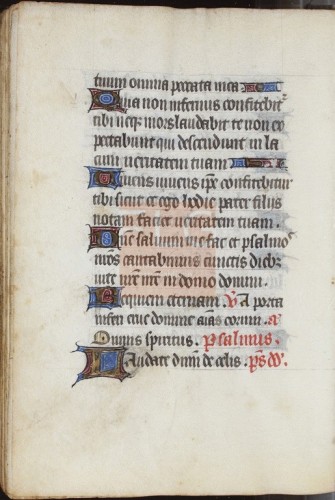 tuum omnia peccata mea.
Quia non infernus confitebit̃
tibi neqꝫ mors laudabit te non ex
pectabunt qui descendunt in la
cum ueritatem tuam.
Uiuens uiuens ip̃e confitebitur
tibi sicut et ego hodie pater filiis
notam faciet ueritatem tuam.
Dñe saluum me fac et psalmo
nr̃os cantabimus cunctis diebꝫ
uite nr̃e in domo domini.
Requiem eternam. V̸ A porta
inferi erue domine aĩas eorum. a̅
Omnis spiritus. Psalmus.
Laudate dñm de celis. ps̃ dd̃.